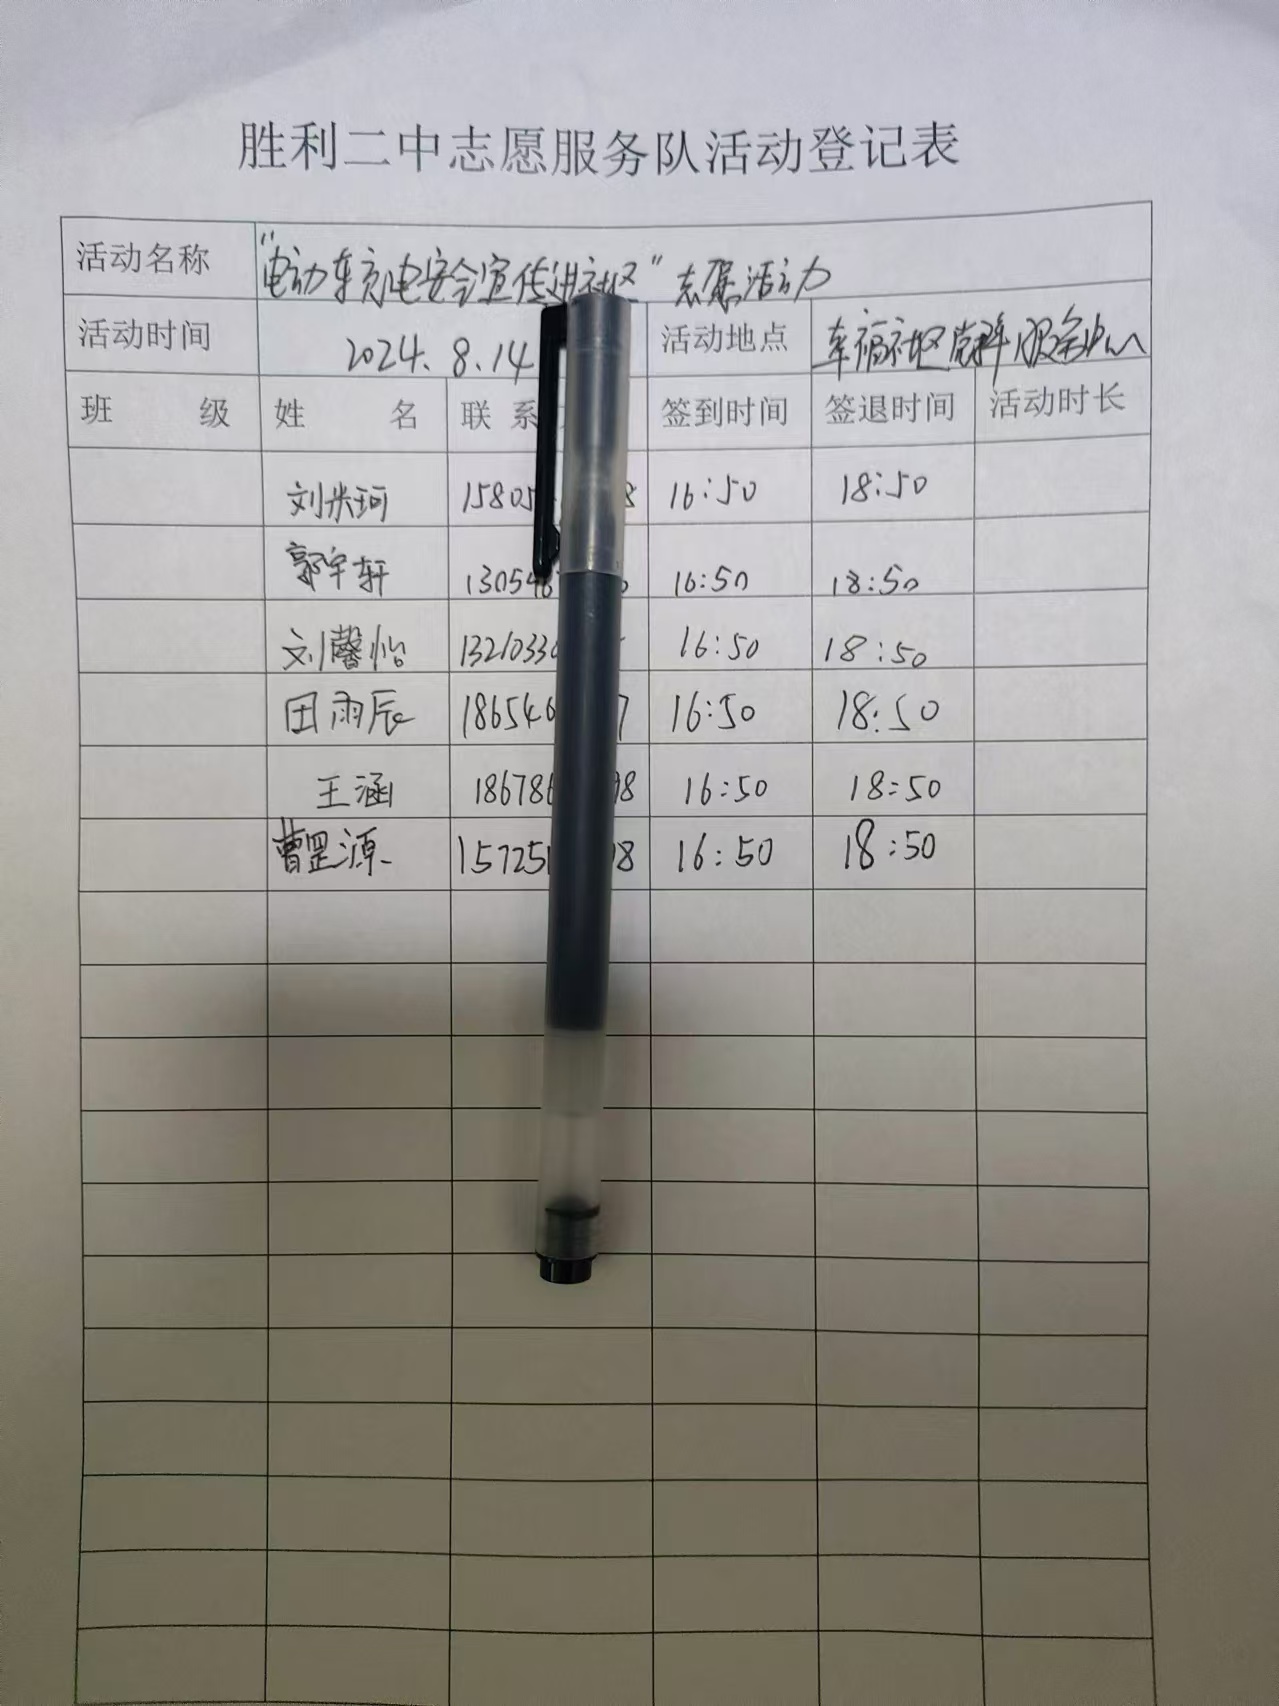 胜利二中志愿服务队活动登记表
活动名称 "电动车充电安全宣传进社区"志愿活动
活动时间 2024.8.14 活动地点 幸福社区党群服务中心
班 级 姓 名 联 系 签到时间 签退时间 活动时长
刘米珂 15805 8 16:50 18:50
郭宇轩 130546 16:50 18:50
刘馨怡 1321033 16:50 18:50
田雨辰 186546 7 16:50 18:50
王涵 186786 98 16:50 18:50
曹罡源 15725 98 16:50 18:50